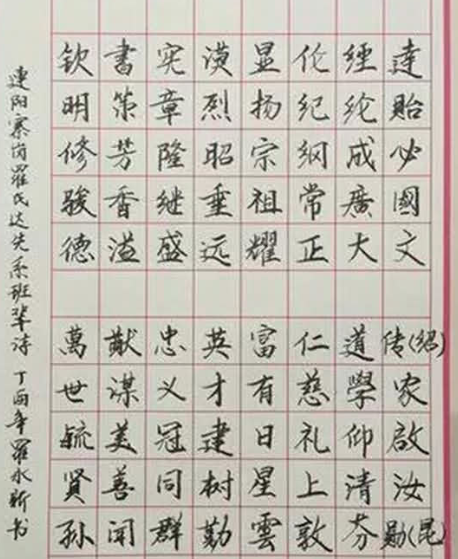 達貽必國文
經纶成廣大
伦纪纲常正
显扬宗祖耀
谟烈昭垂远
宪章隆继盛
書策芳香溢
钦明修骏德
传(绍)家啟汝勋(昆)
道學仰清芬
仁慈礼上敦
富有日星雲
英才建树勤
忠义冠同群
猷谋美善闻
萬世毓贤孙
連阳寨岗羅氏达先系班辈诗 丁酉年羅永新书